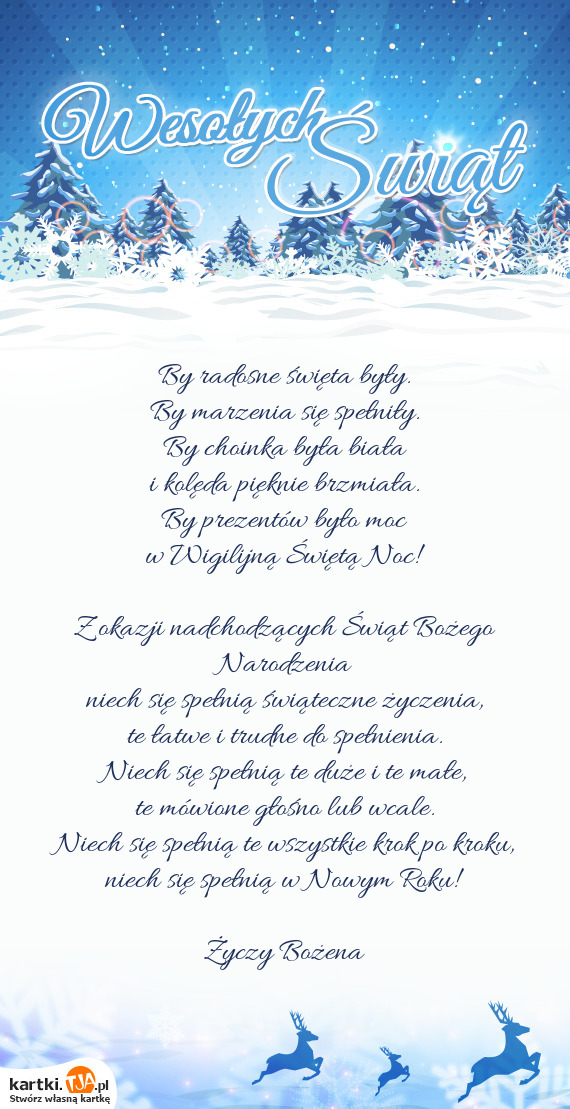 Wesołych
Świąt
By radosne święta były.
By marzenia się spełniły.
By choinka była biała
i kolęda pięknie brzmiała.
By prezentów było moc
w Wigilijną Świętą Noc!
Z okazji nadchodzących Świąt Bożego
Narodzenia
niech się spełnią świąteczne życzenia,
te łatwe i trudne do spełnienia.
Niech się spełnią te duże i te małe,
te mówione głośno lub wcale.
Niech się spełnią te wszystkie krok po kroku,
niech się spełnią w Nowym Roku!
Życzy Bożena
kartki.TJA.pl
Stwórz własną kartkę